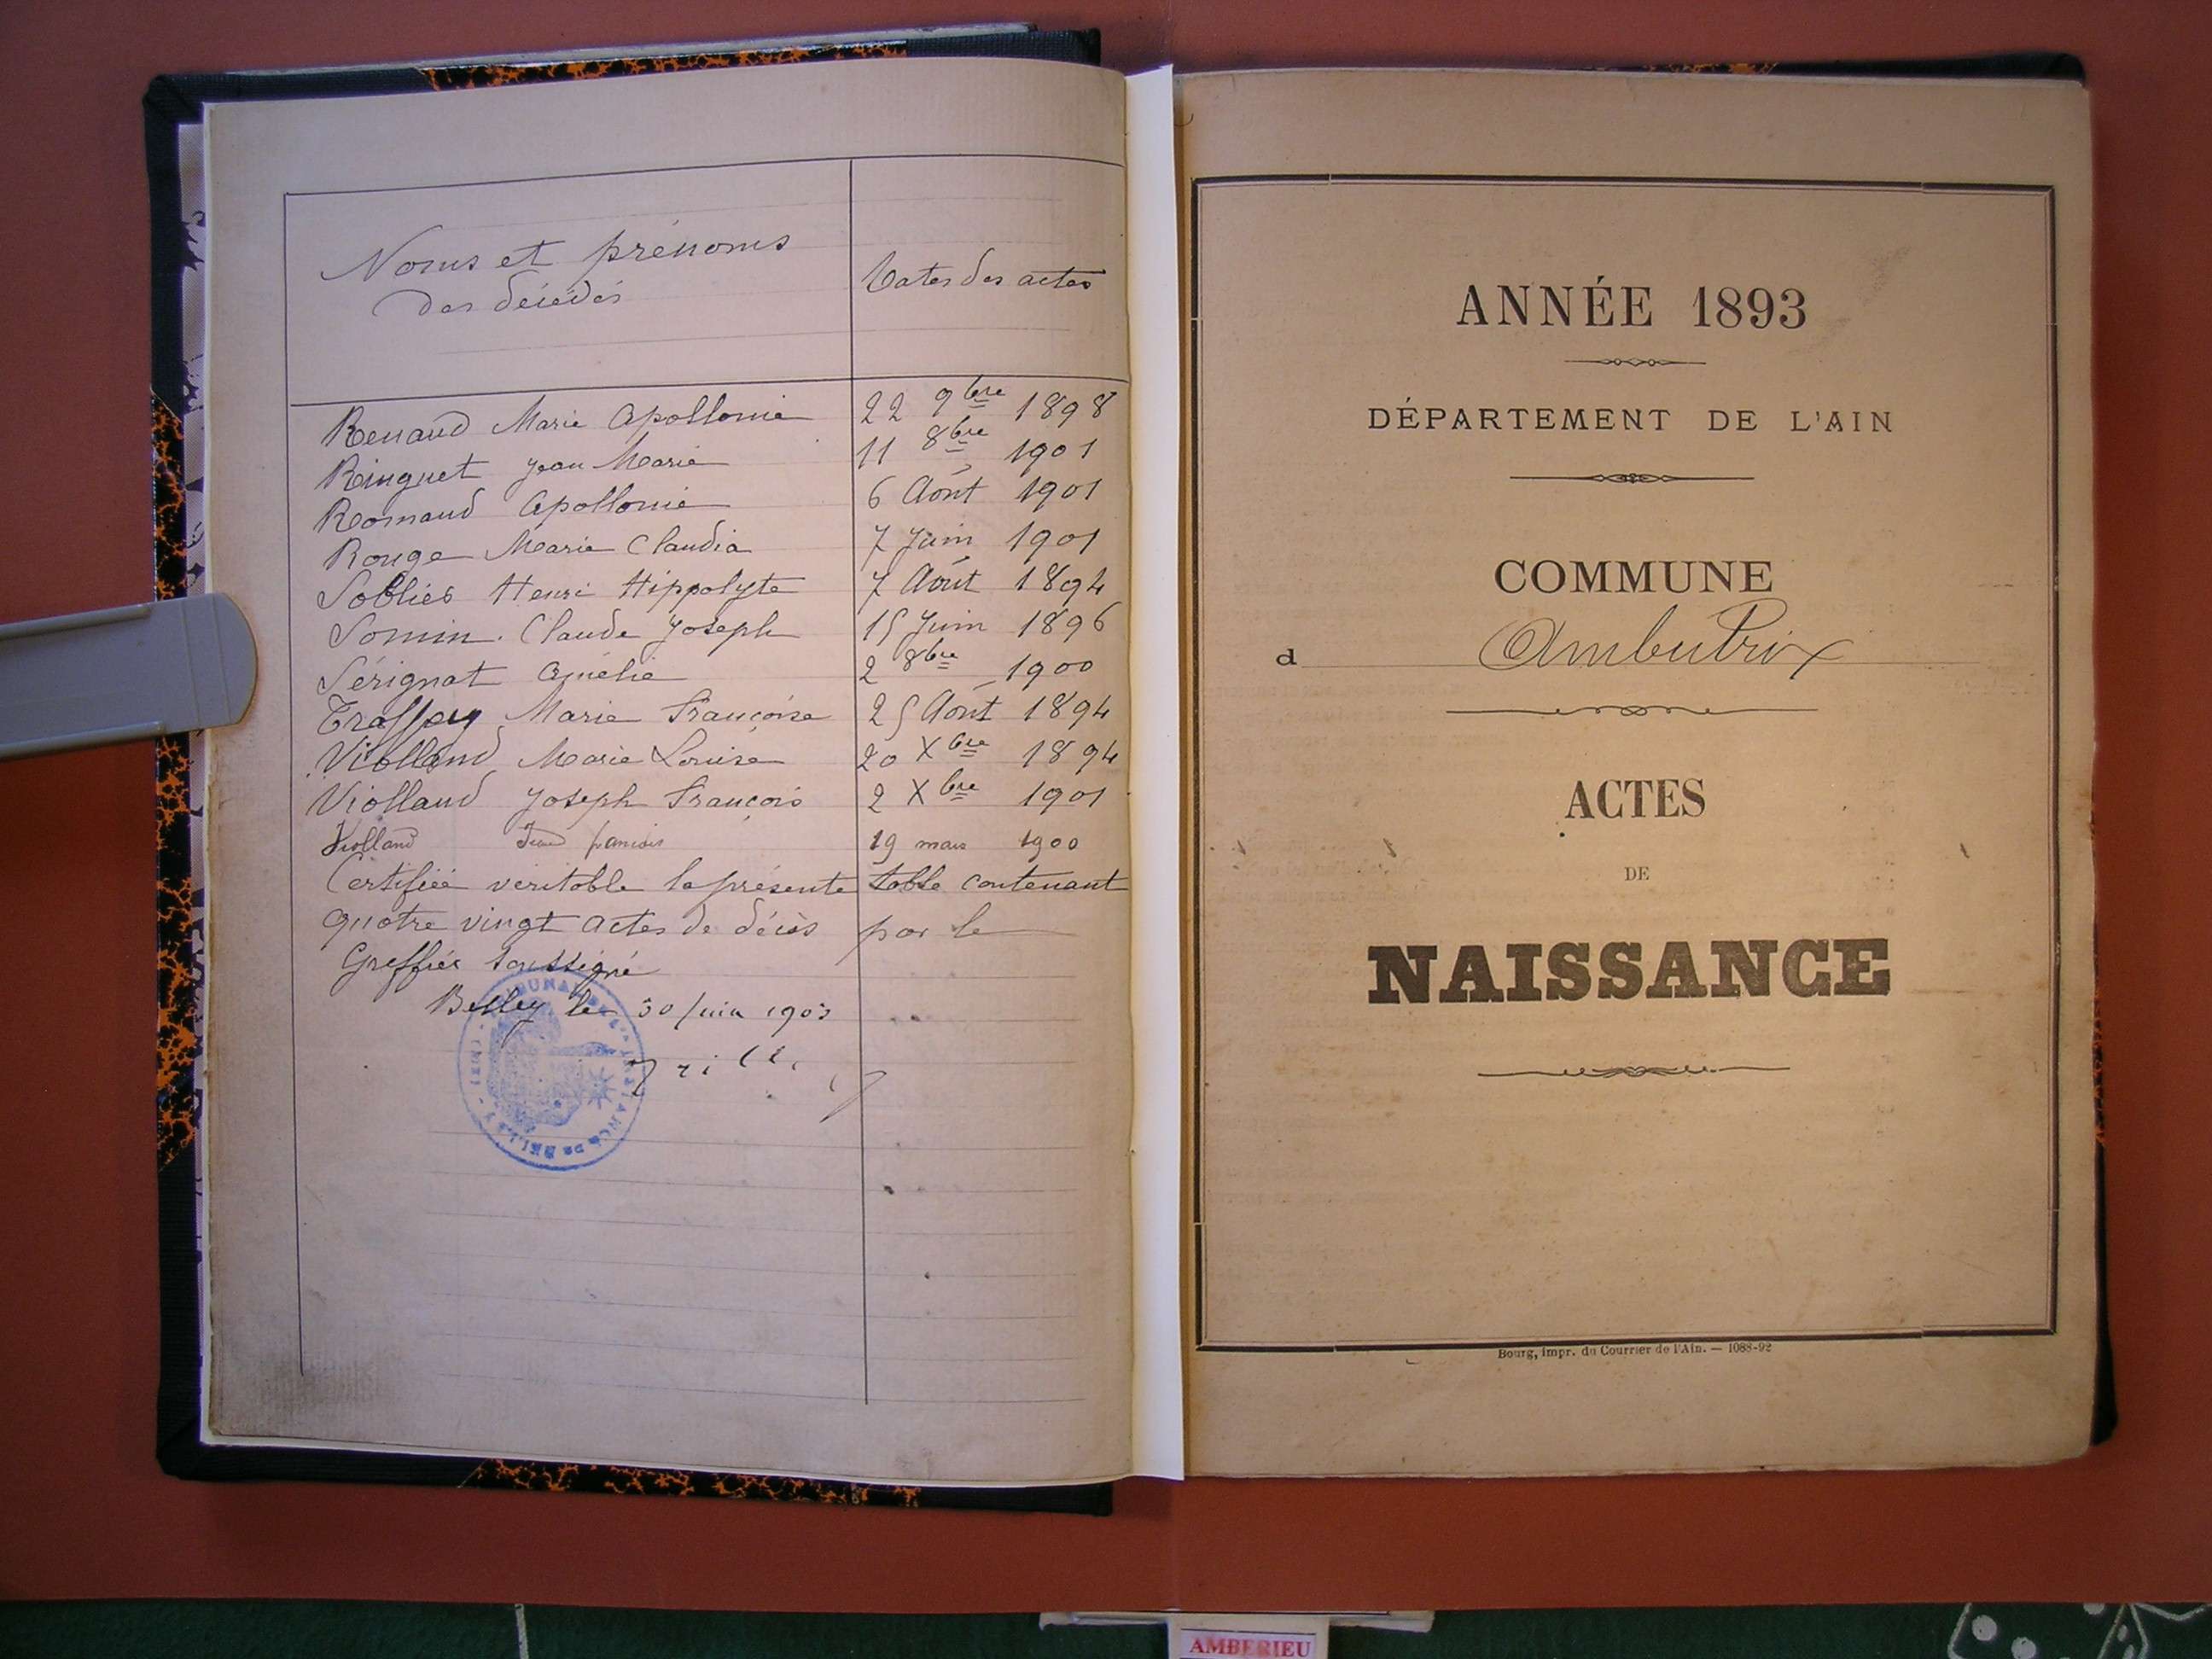 Noms et prénoms
des décédés
Dates des actes
Renaud Marie Apollonie 22 9bre 1898
Ringuet Jean Marie 11 8bre 1901
Romand Apollonie 6 Août 1901
Rouge Marie Claudia 7 Juin 1901
Soblier Henri Hippolyte 7 Août 1894
Somin Claude Joseph 15 Juin 1896
Sérignat Amélie 2 8bre 1900
Marie Françoise 25 Août 1894
Violland Marie Louise 20 Xbre 1894
Violland Joseph François 2 Xbre 1901
Violland Jean françois 19 mars 1900
Certifiée véritable la présente table contenant
quatre vingt actes de décès par le
Greffier soussigné
Belley le 30 juin 1903
ANNÉE 1893
DÉPARTEMENT DE L'AIN
COMMUNE
d Ambutrix
ACTES
DE
NAISSANCE
Bourg, impr. du Courrier de l'Ain. — 1088-92
AMBERIEU